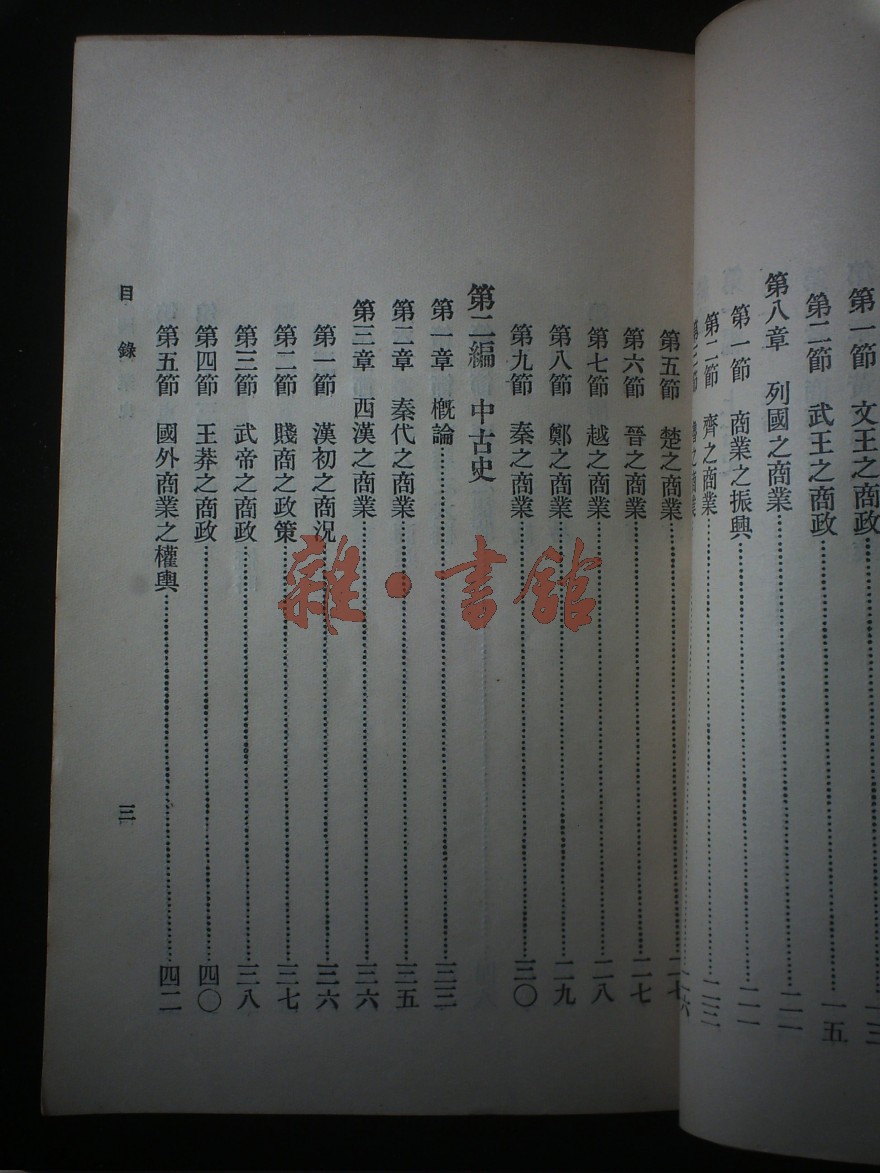 第一節 文王之商政……一三
第二節 武王之商政……一五
第八章 列國之商業……二一
第一節 商業之振興……二一
第二節 齊之商業……二三
第三節 魯之商業……二六
第五節 楚之商業……二七
第六節 晉之商業……二七
第七節 越之商業……二八
第八節 鄭之商業……二九
第九節 秦之商業……三〇
第二編 中古史
第一章 槪論……三三
第二章 秦代之商業……三五
第三章 西漢之商業……三六
第一節 漢初之商況……三六
第二節 賤商之政策……三七
第三節 武帝之商政……三八
第四節 王莽之商政……四〇
第五節 國外商業之權輿……四二
目錄 三
雜·書館